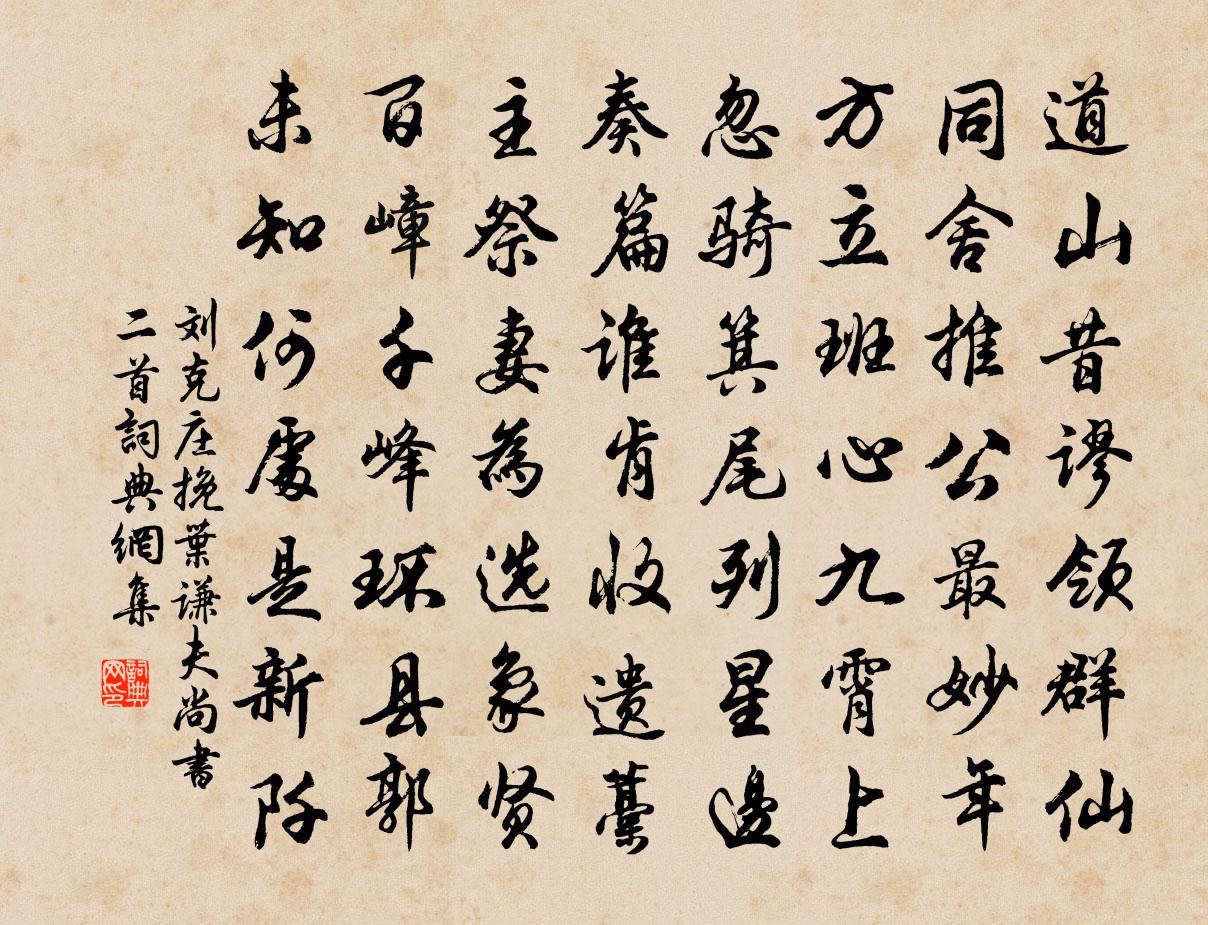 道山昔谬领群仙
同舍推公最妙年
方立班心九霄上
忽骑箕尾列星邊
奏篇谁肯收遗藁
主祭妻為选象贤
百嶂千峰环县郭
未知何處是新阡
刘克庄挽葉谦夫尚書
二首詞典網集
詞典网印